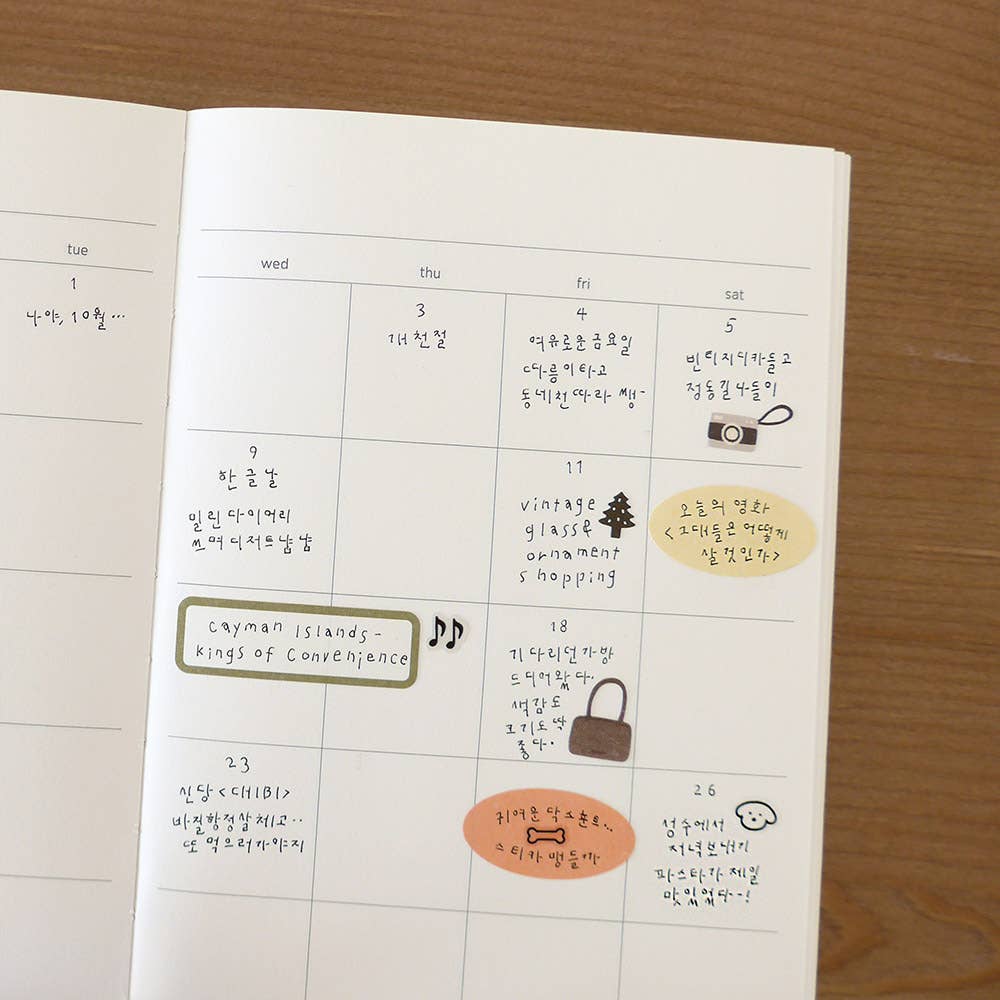 tue
wed
thu
fri
sat
1
나야, 10월...
3
개천절
4
여유로운 금요일
따릉이 타고
동네천 따라 쌩-
5
빈티지 디카 들고
정동길 나들이
9
한글날
밀린 다이어리
쓰며 디저트 냠냠
11
vintage
glass&
ornament
shopping
오늘의 영화
<그대들은 어떻게
살 것인가>
cayman islands-
kings of convenience
18
기다리던 가방
드디어 왔다.
색감도
크기도 딱
좋다.
23
신당 <대비>
바질항정살 체고..
또 먹으러 가야지
귀여운 닥스훈트...
스티카 맹들까
26
성수에서
저녁 보내기
파스타가 제일
맛있었다-!